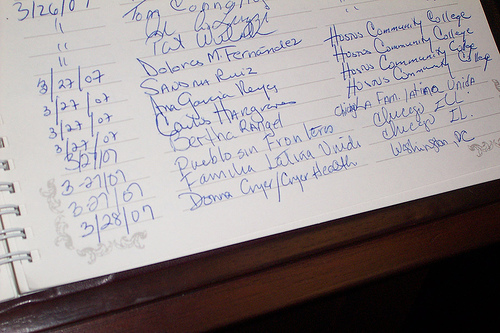 3/26/07 Tom
" "
" Pat
3/27/07 Dolores M. Fernandez Hostos Community College
3/27/07 Sandra Ruiz Hostos Community College
3/27/07 Ana Garcia Reyes Hostos Community College
3/27/07 Carlos Hargraves Hostos Community College
3/27/07 Bertha Rangel Fam. Latina Unida
3-27/07 Pueblo sin Fronteras Chicago Ill.
3-27/07 Familia Latina Unida Chicago IL.
3/28/07 Donna Cryer/Cryer Health Washington, DC